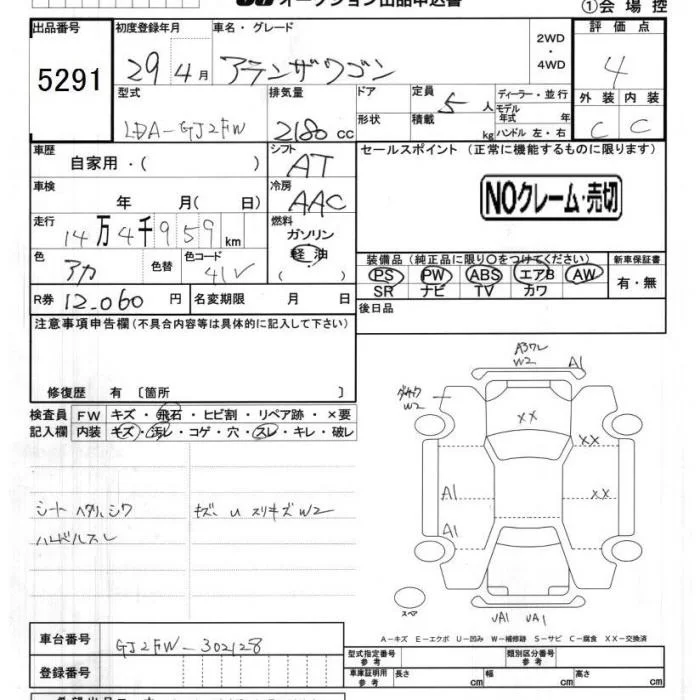 オークション出品申込書
①会場控
出品番号 初度登録年月 車名・グレード 評価点
5291 29年 4月 アテンザワゴン 2WD・4WD 4
型式 排気量 ドア 定員 ディーラー・並行 外装 内装
LDA-GJ2FW 2180cc 形状 5人 モデル年式 年 C C
積載 kg ハンドル 左・右
車歴 シフト セールスポイント (正常に機能するものに限ります)
自家用・( ) AT
車検 冷房 NOクレーム・売切
年 月( 日) AAC
走行 燃料
14万4千959km ガソリン
軽油
( )
色 色替 色コード 装備品(純正品に限り〇をつけてください) 新車保証書
アカ 41V PS PW ABS エアB AW 有・無
SR ナビ TV カワ
R券 12.060円 名変期限 月 日 後日品
注意事項申告欄(不具合内容等は具体的に記入して下さい)
修復歴 有〔箇所 〕
検査員 FW キズ・飛石・ヒビ割・リペア跡・×要
記入欄 内装 キズ・汚レ・コゲ・穴・スレ・キレ・破レ
シート ヘタリ、シワ
ハンドルスレ
キズ、U スリキズ W2
W2 A1
W2
XX
XX
A1 XX
A1
スペア
UA1 UA1
A-キズ E-エクボ U-凹み W-補修跡 S-サビ C-腐食 XX-交換済
車台番号 GJ2FW-302128 型式指定番号 参考 類別区分番号 参考
登録番号 車庫証明用 参考 長さ cm 幅 cm 高さ cm